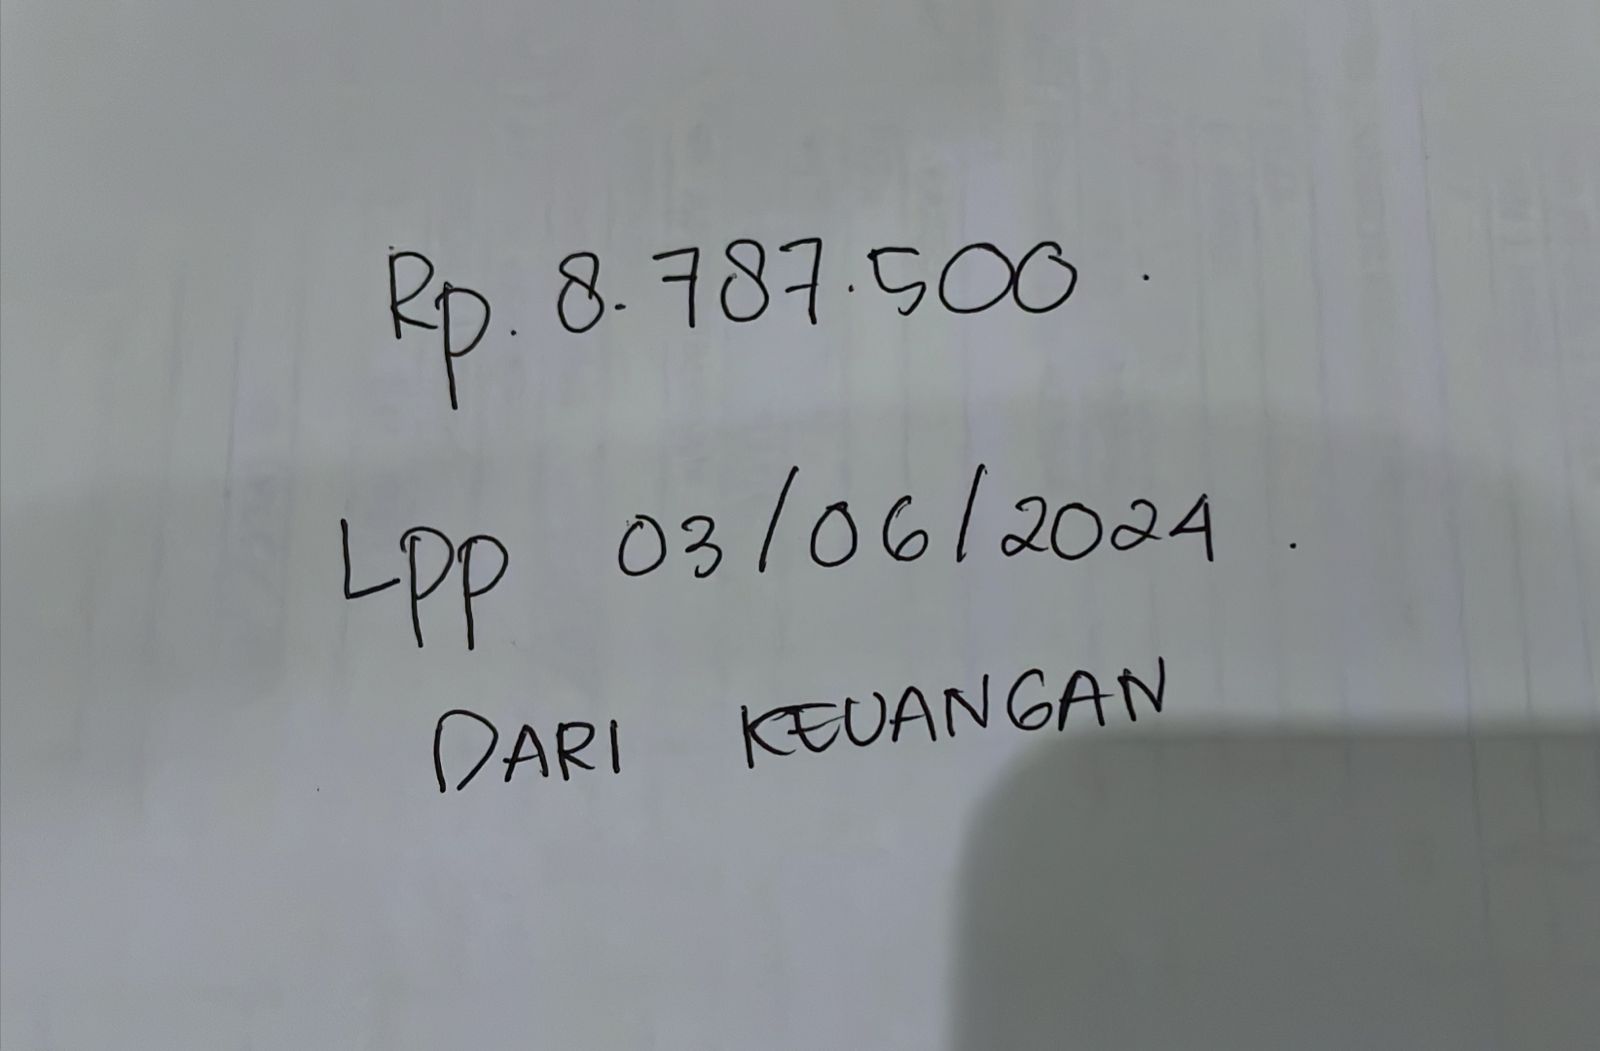 Rp. 8.787.500.
Lpp 03/06/2024.
DARI KEUANGAN